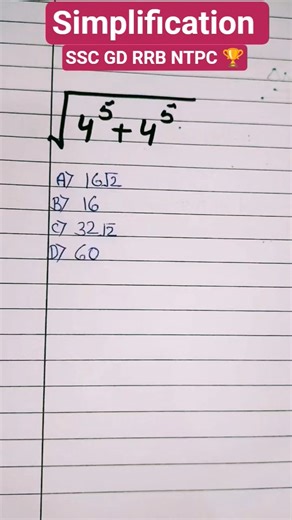 Simplification
SSC GD RRB NTPC 🏆
√4⁵ + 4⁵
A> 16√2
B> 16
C> 32√2
D> 60